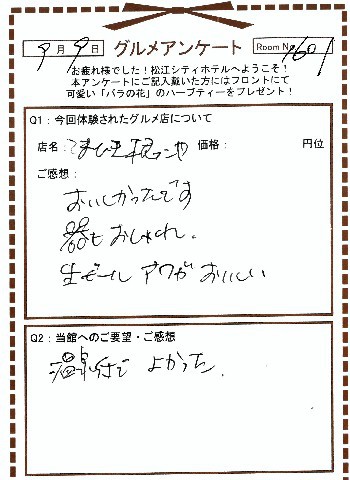 9月9日 グルメアンケート Room No. 1601
お疲れ様でした！松江シティホテルへようこそ！
本アンケートにご記入戴いた方にはフロントにて
可愛い「バラの花」のハーブティーをプレゼント！
Q1：今回体験されたグルメ店について
店名： 価格： 円位
ご感想：
おいしかったです
器もおしゃれ。
生ビール アワがおいしい
Q2：当館へのご要望・ご感想
温泉付で よかった。